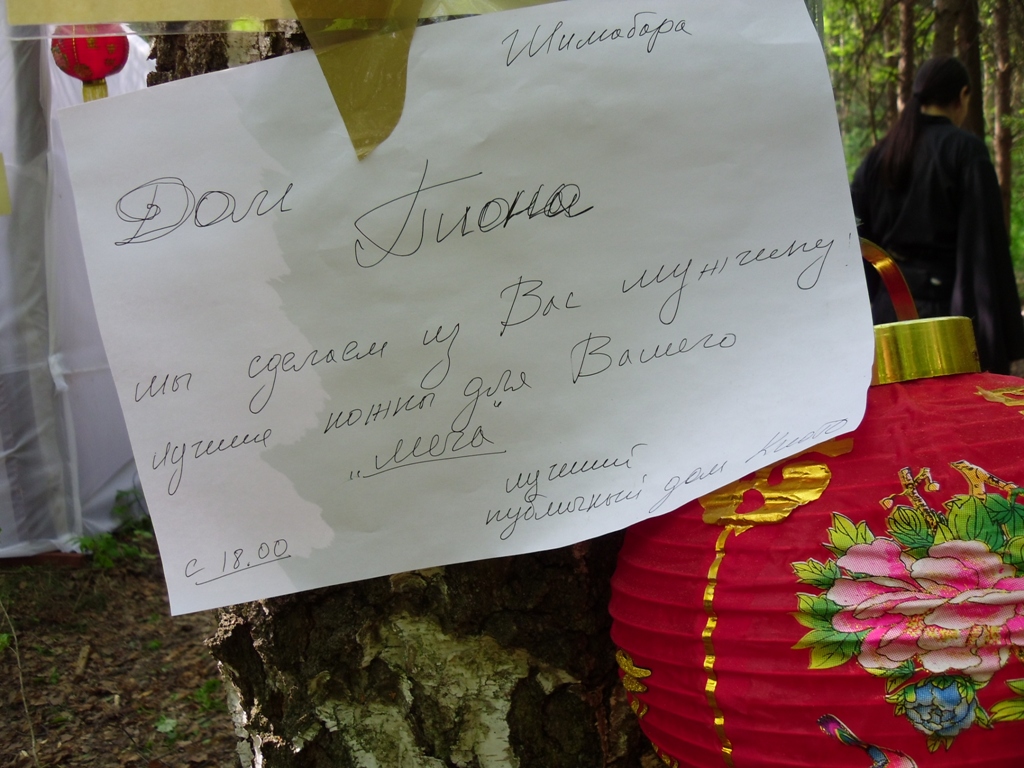 Шимабара
Дом Пиона
мы сделаем из Вас мужчину!
лучшие ножны для Вашего
„меча"
лучший
публичный дом Киото
с 18.00